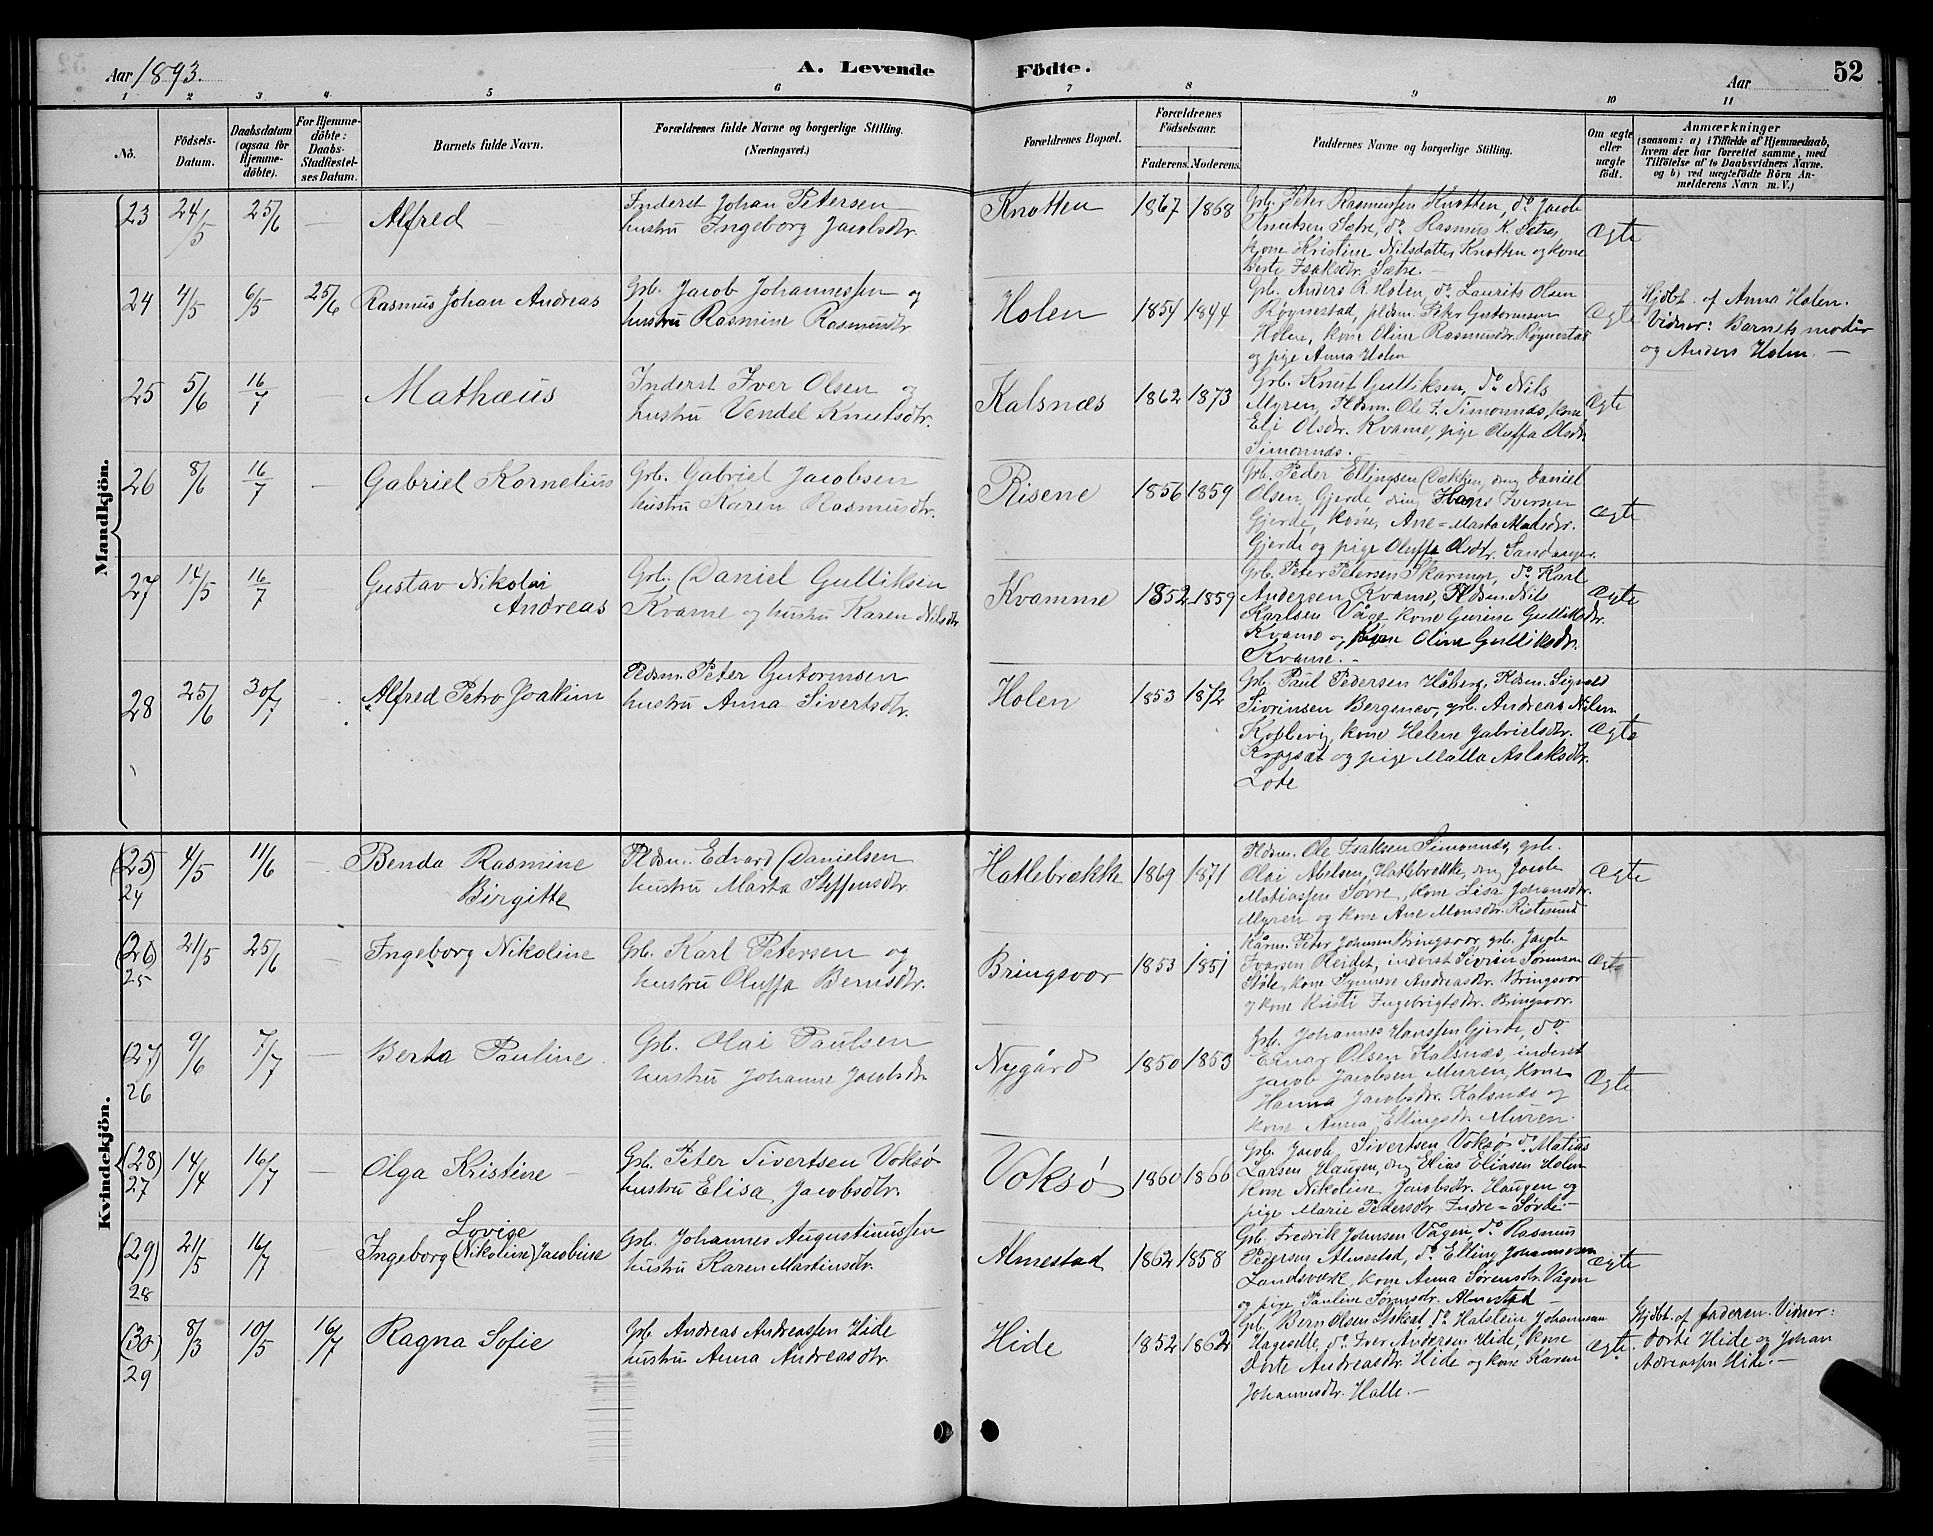 Aar 1893.
A. Levende
Födte.
Aar
52
1 2 3 4 5 6 7 8 9 10 11
No.
Födsels-Datum.
Daabsdatum (ogsaa for Hjemme-döbte).
For Hjemme-döbte: Daabs-Stadfæstel-ses Datum.
Barnets fulde Navn.
Forældrenes fulde Navne og borgerlige Stilling.
(Næringsvei.)
Forældrenes Bopæl.
Forældrenes Födselsaar.
Faderens. Moderens.
Faddernes Navne og borgerlige Stilling.
Om ægte eller uægte födt.
Anmærkninger
(saasom: a) i Tilfælde af Hjemmedaab,
hvem der har forrettet samme, med
Tilföielse af to Daabsvidners Navne.
og b) ved uægtefödte Börn An-
melderens Navn m. V.)
Mandkjön.
23 24/5 25/6 — Alfred
Inderst Johan Petersen
hustru Ingeborg Jacobsdtr.
Knotten 1867 1868
Grb. Peter Rasmussen Knotten, do Jacob
Knutsen Sætre, do Rasmus K. Sætre,
kone Kristine Nilsdatter Knotten og kone
Berte Isaksdtr. Sætre.—
Ægte
24 4/5 6/5 25/6 Rasmus Johan Andreas
Grb. Jacob Johannessen og
hustru Rasmine Rasmusdtr
Holen 1854 1844
Grb. Anders R. Holen, do Laurits Olsen
Røgnestad, pldsm. Peter Gutormsen
Holen, kone Oline Rasmusdtr. Røgnestad
og pige Anna Holen
Ægte
Hjdbt. af Anna Holen.
Vidner: Barnets moder
og Anders Holen.—
25 5/6 16/7 — Mathæus
Inderst Iver Olsen og
hustru Vendel Knutsdtr.
Kalsnæs 1862 1873
Grb. Knut Gulliksen, do Nils
Myren, Pldsm. Ole I. Simonnæs, kone
Eli Olsdtr. Kvame, pige Oluffa Olsdtr
Simonnæs.
Ægte
26 8/6 16/7 — Gabriel Kornelius
Grb. Gabriel Jacobsen
hustru Karen Rasmusdtr.
Risene 1856 1859
Grb. Peder Ellingsen Dokken, dreng Daniel
Olsen Gjerde, dreng Hans Iversen
Gjerde, kone Ane=Marta Madsdtr.
Gjerde og pige Oluffa Olsdtr. Sandanger.
Ægte
27 14/5 16/7 Gustav Nikolai
Andreas
Grb. Daniel Gulliksen
Kvame og hustru Karen Nilsdtr
Kvamme 1852 1859
Grb. Peter Petersen Skarmyr, do Karl
Andersen Kvame, Pldsm. Nils
Karlsen Våge kone Gurine Gulliksdtr.
Kvame og pige Oline Gulliksdtr.
Kvame.—
Ægte
28 25/6 30/7 — Alfred Petro Joakim
Pldsm. Peter Gutormsen
hustru Anna Sivertsdtr.
Holen 1853 1872
Grb. Paul Pedersen Håberg, Pldsm. Sigvald
Sivrinsen Bergsnev, grb. Andreas Nilsen
Koplevig, kone Helene Gabrielsdtr.
Krogsæt og pige Malla Aslaksdtr.
Lote
Ægte
Kvindekjön.
(25) 24 4/5 11/6 — Benda Rasmine
Birgitte
Pldsm. Edvard Danielsen
hustru Marta Steffensdtr.
Hatlebrække 1869 1871
Pldsm. Ole Isaksen Simonnæs, grb.
Olai Abelsen, Hatlebrekke, dreng Jacob
Matiassen Sovre, kone Lisa Johansdtr.
Myren og kone Ane Monsdtr. Ristesund
Ægte
(26) 25 21/5 25/6 — Ingeborg Nikoline
Grb. Karl Petersen og
hustru Oluffa Berntsdtr.
Bringsvor 1853 1851
Kårm. Peter Johnsen Bringsvor, grb. Jacob
Ivarsen Reidet, inderst Sivrin Sørensen
Støle, kone Synneve Andreasdtr. Bringsvor
og kone Kristi Ingebrigtsdtr. Bringsvor.
Ægte
(27) 26 9/6 7/7 — Berta Pauline.
Grb. Olai Paulsen
hustru Johanne Jacobsdtr.
Nygård 1850 1853
Grb. Johannes Hanssen Gjerde, do
Einar Olsen Kalsnæs, inderst
Jacob Jacobsen Muren, kone
Hanna Jacobsdtr. Kalsnæs og
kone Anna Ellingsdtr Muren.
Ægte
(28) 27 14/4 16/7 — Olga Kristine
Grb. Peter Sivertsen Voksø
hustru Elisa Jacobsdtr.
Voksø 1860 1866
Grb. Jacob Sivertsen Voksø do Matias
Larsen Haugen, dreng Elias Eliasen Holen
kone Nikoline Jacobsdtr. Haugen og
pige Marie Pedersdtr. Indre=Sørde.—
(29) 28 21/5 16/7 — Lovise
Ingeborg (Nikoline) Jacobine
Grb. Johannes Augustinussen
hustru Karen Martinsdtr.
Almestad 1862 1858
Grb. Fredrik Johnsen Vågen, do Rasmus
Pedersen Almestad, do Elling Johannesen
Landsværk, kone Anna Sørensdtr. Vågen
og pige Pauline Sørensdtr. Almestad
Ægte
(30) 29 8/3 10/5 16/7 Ragna Sofie
Grb. Andreas Andreassen Hide
hustru Anna Andreasdtr.
Hide 1852 1862
Grb. Bernt Olsen Stokset, do Halstein Johannesen
Hageselle, do Iver Andersen Hide, kone
Dorte Andreasdtr. Hide og kone Karen
Johannesdtr. Halle.—
Ægte.
Hjdbt. af faderen. Vidner:
Dorte Hide og Johan
Adreassen Hide.—